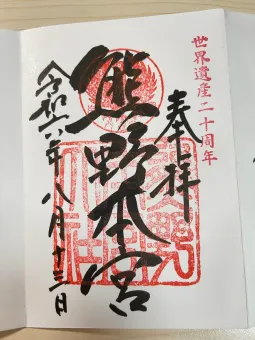 世界遺産二十周年
奉拝
熊野本宮
令和六年八月十三日